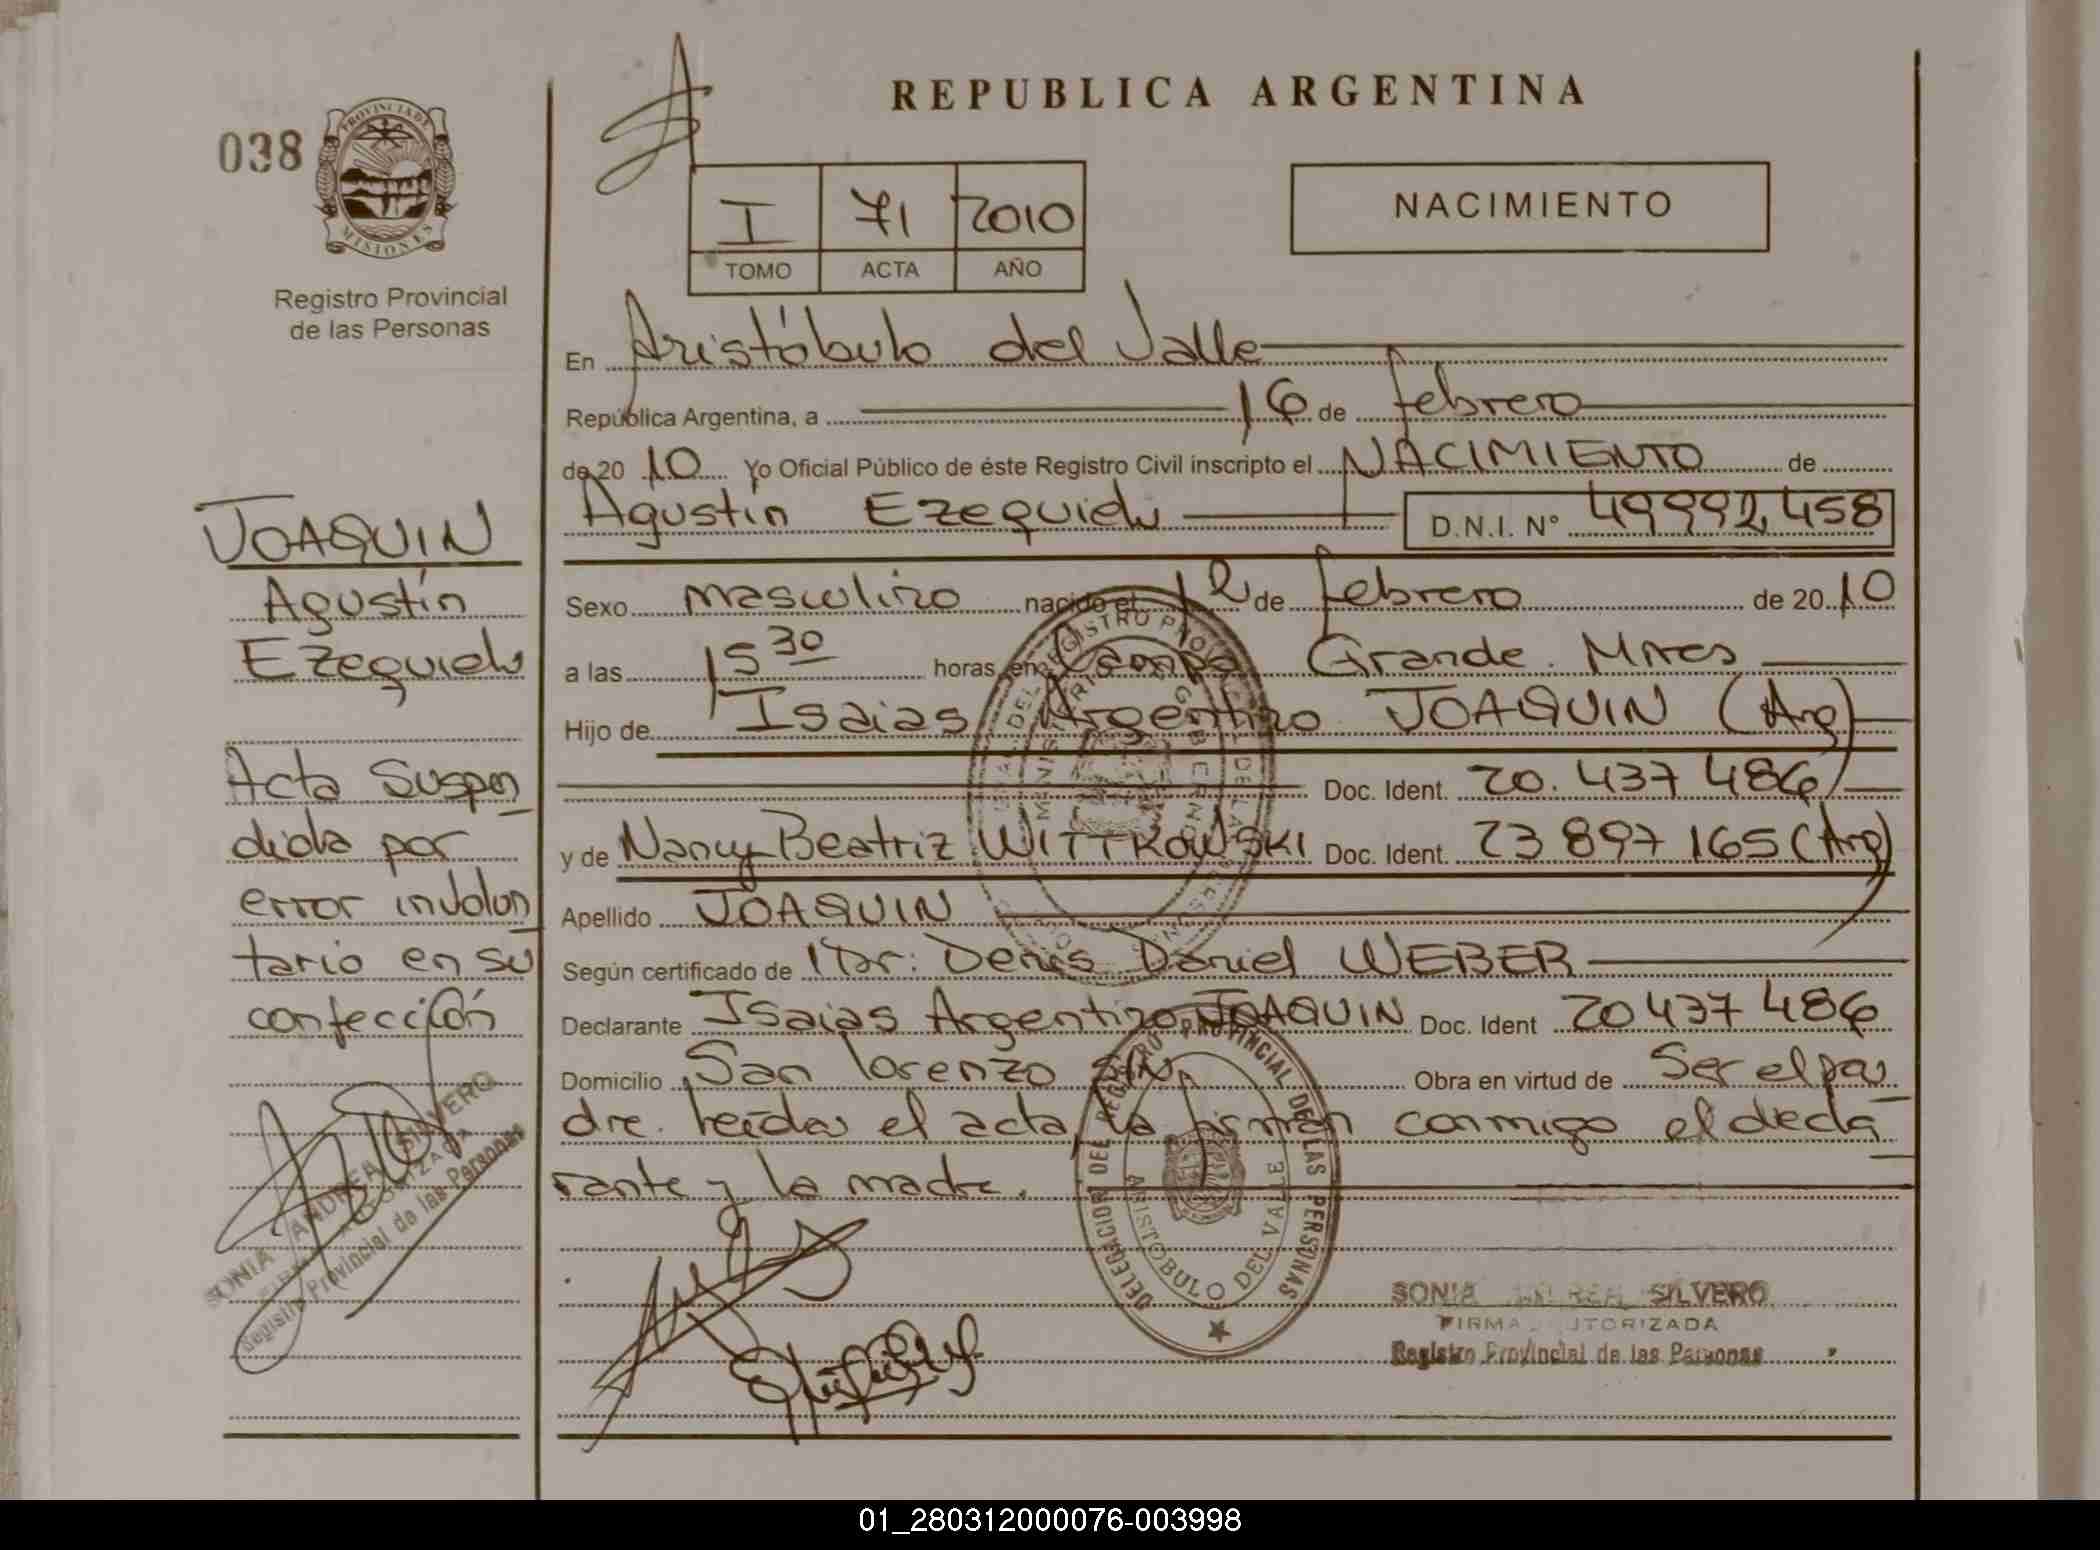 REPUBLICA ARGENTINA
038
PROVINCIA DE
MISIONES
Registro Provincial
de las Personas
I 71 2010
TOMO ACTA AÑO
NACIMIENTO
En Aristóbulo del Valle
República Argentina, a 16 de febrero
de 20 10 Yo Oficial Público de éste Registro Civil inscripto el NACIMIENTO de
Agustín Ezequiel D.N.I. Nº 49992458
Sexo masculino nacido el 12 de febrero de 20 10
a las 15 30 horas en Campo Grande. Mnes
Hijo de Isaias Argentino JOAQUIN (Arg)
Doc. Ident. 20.437 486
y de Nancy Beatriz WITTKOWSKI Doc. Ident. 23 897 165 (Arg)
Apellido JOAQUIN
Según certificado de Dr: Denis Daniel WEBER
Declarante Isaias Argentino JOAQUIN Doc. Ident 20437 486
Domicilio San Lorenzo S/N Obra en virtud de Ser el pa
dre. Leída el acta la firman conmigo el decla
rante y la madre.
JOAQUIN
Agustín
Ezequiel
Acta Suspen
dida por
error involun
tario en su
confección
SONIA ANDREA SILVERO
Registro Provincial de las Personas
DELEGACION DEL REGISTRO PROVINCIAL DE LAS PERSONAS
ARISTOBULO DEL VALLE
SONIA ANDREA SILVERO
FIRMA AUTORIZADA
Registro Provincial de las Personas
01_280312000076-003998